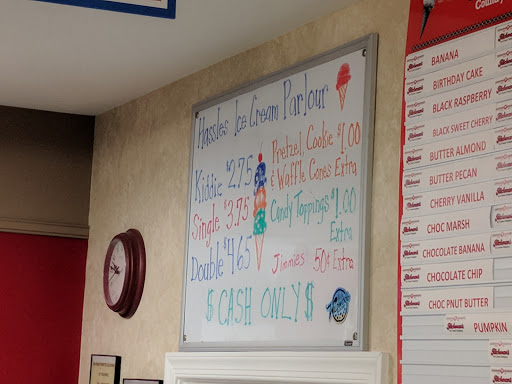 Hassles Ice Cream Parlour
Kiddie $2.75
Single $3.75
Double $4.65
Pretzel, Cookie $1.00
& Waffle Cones Extra
Candy Toppings $1.00
Extra
Jimmies 50¢ Extra
$ CASH ONLY $
Country
BANANA
BIRTHDAY CAKE
BLACK RASPBERRY
BLACK SWEET CHERRY
BUTTER ALMOND
BUTTER PECAN
CHERRY VANILLA
CHOC MARSH
CHOCOLATE BANANA
CHOCOLATE CHIP
CHOC PNUT BUTTER
PUMPKIN